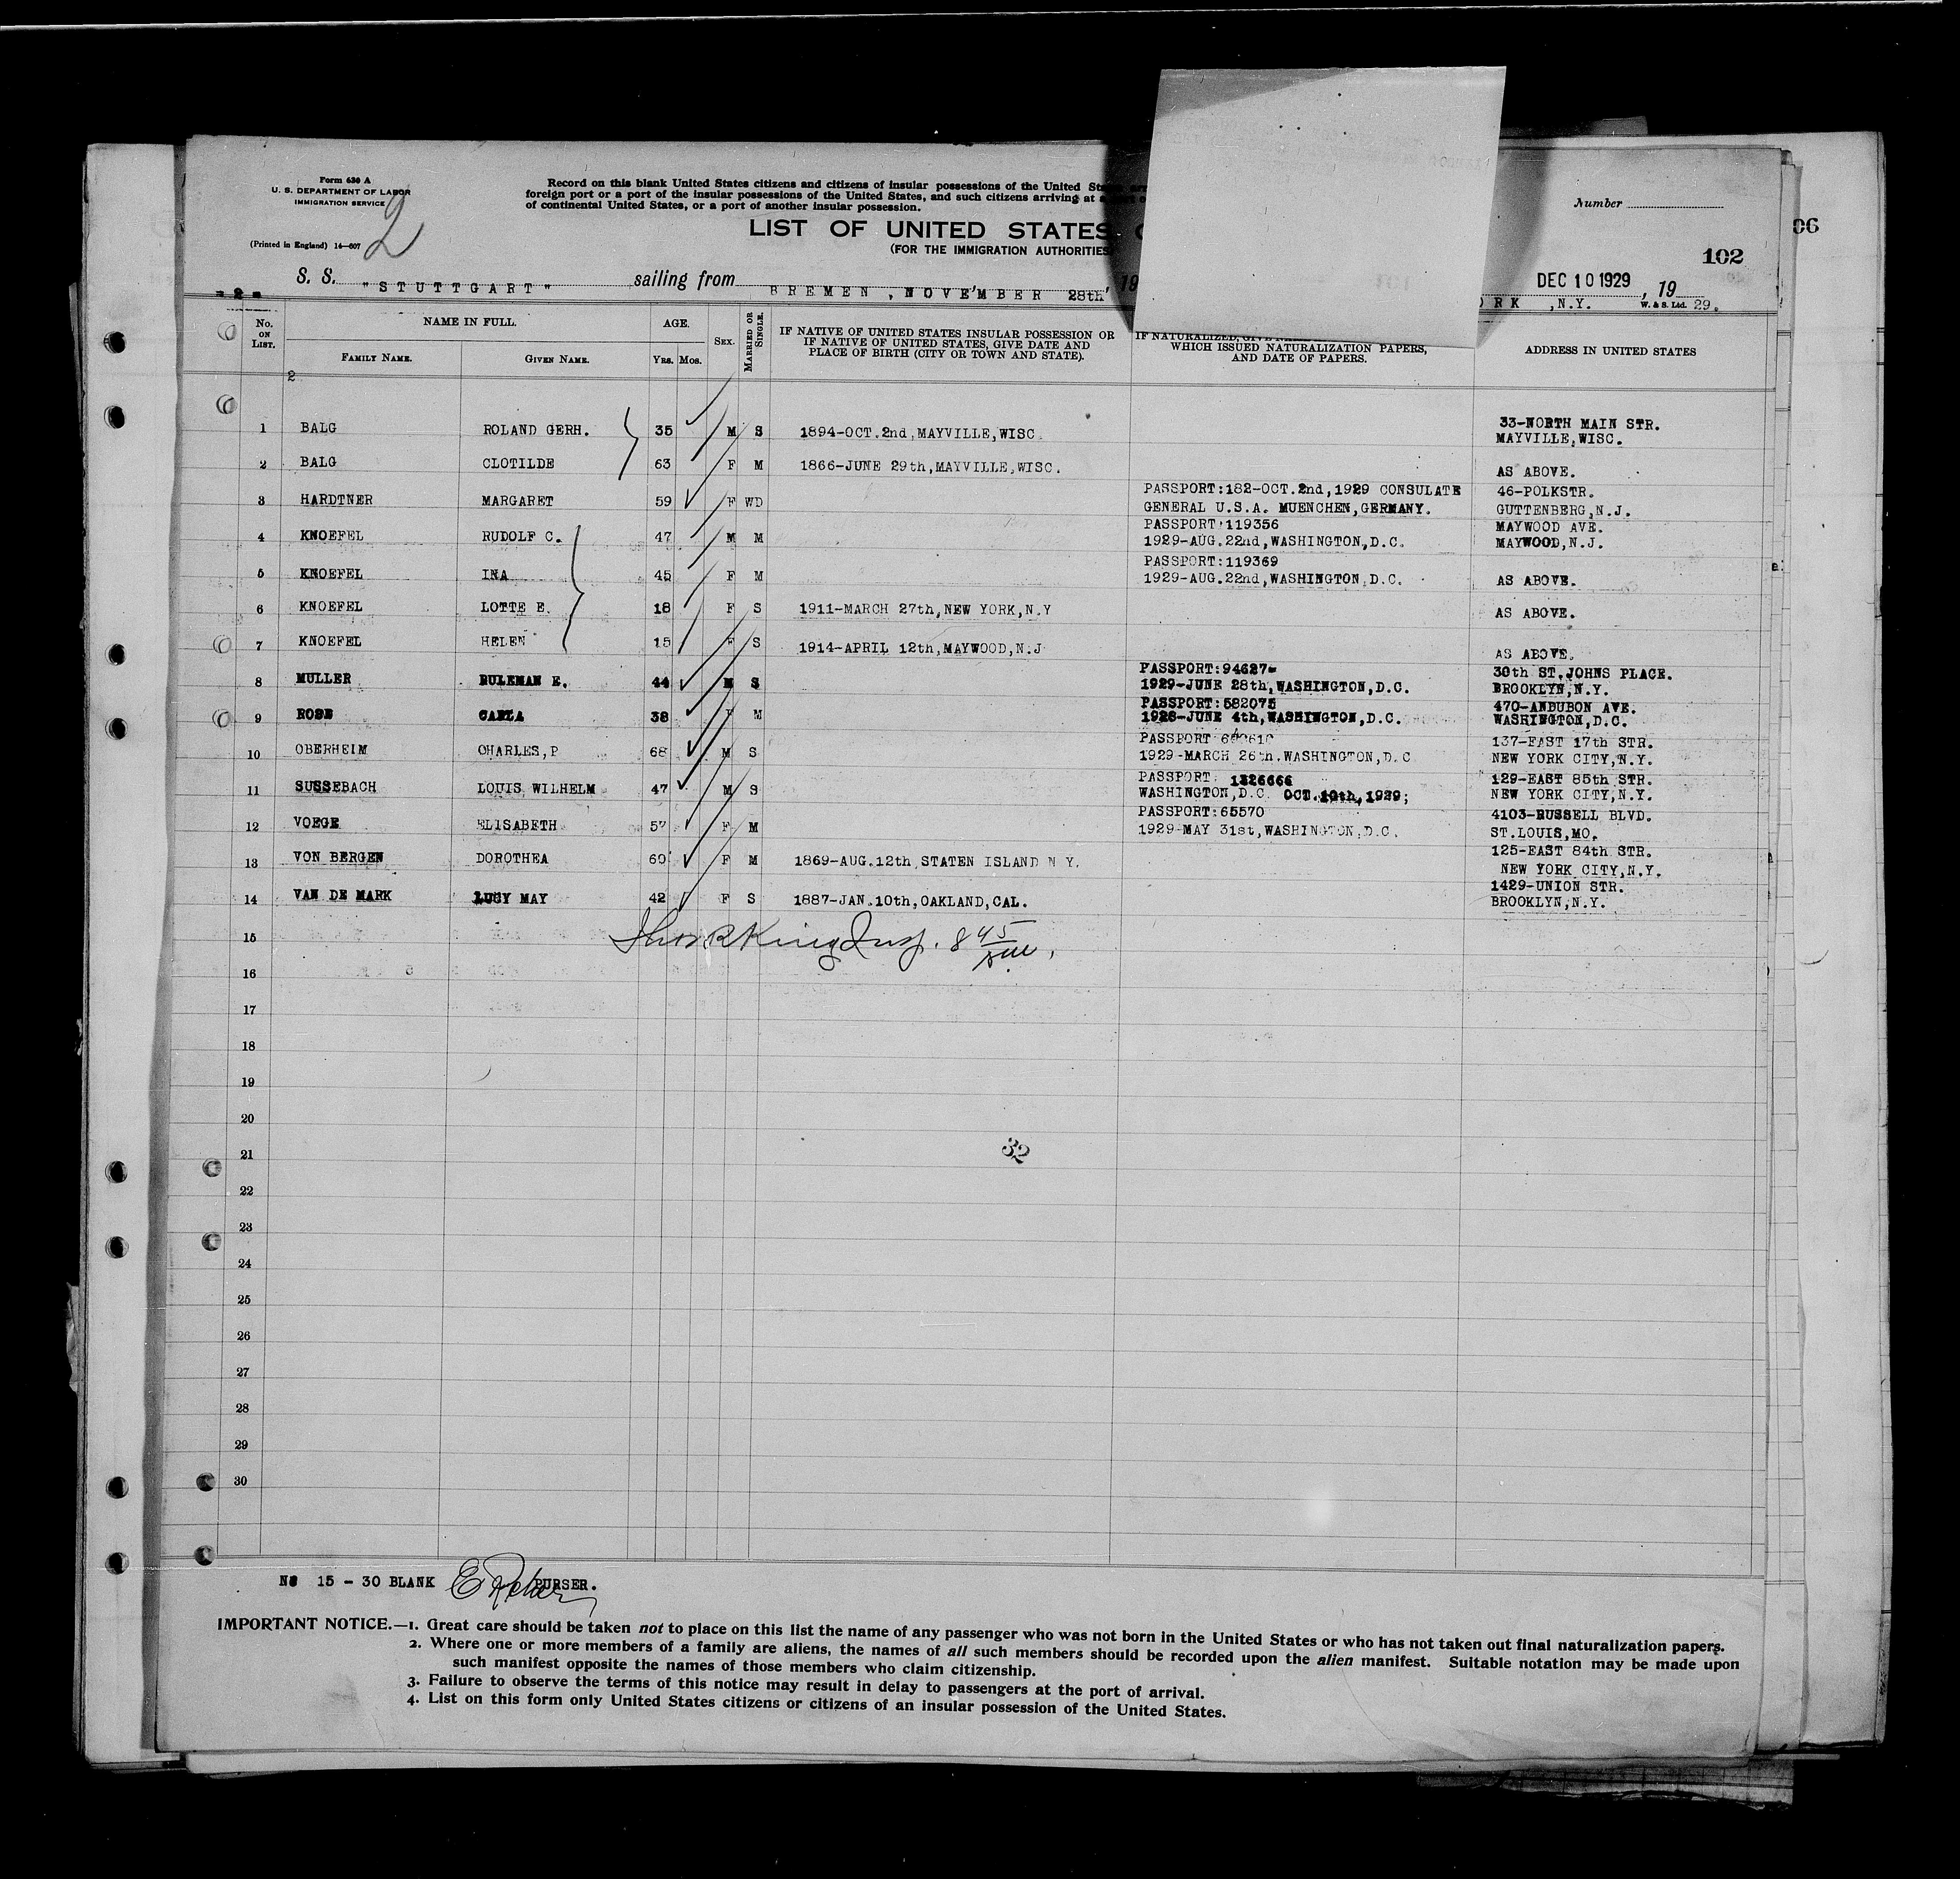 Form 630 A
U. S. DEPARTMENT OF LABOR
IMMIGRATION SERVICE
(Printed in England) 14—607
2
Record on this blank United States citizens and citizens of insular possessions of the United
foreign port or a port of the insular possessions of the United States, and such citizens arriving at
of continental United States, or a port of another insular possession.
LIST OF UNITED STATES
(FOR THE IMMIGRATION AUTHORITIES
Number
06
102
S. S. "STUTTGART" sailing from BREMEN, NOVEMBER 28th, 19
DEC 10 1929, 19 29.
ORK, N.Y. W. & S. Ltd.
- 2 -
No. ON LIST.
NAME IN FULL.
FAMILY NAME.
GIVEN NAME.
AGE.
YRS. MOS.
SEX.
MARRIED OR SINGLE.
IF NATIVE OF UNITED STATES INSULAR POSSESSION OR
IF NATIVE OF UNITED STATES, GIVE DATE AND
PLACE OF BIRTH (CITY OR TOWN AND STATE).
IF NATURALIZED, GIVE
WHICH ISSUED NATURALIZATION PAPERS,
AND DATE OF PAPERS.
ADDRESS IN UNITED STATES
2
1 BALG ROLAND GERH. 35 M S 1894-OCT.2nd,MAYVILLE,WISC. 33-NORTH MAIN STR.
MAYVILLE,WISC.
2 BALG CLOTILDE 63 F M 1866-JUNE 29th,MAYVILLE,WISC. AS ABOVE.
3 HARDTNER MARGARET 59 F WD PASSPORT:182-OCT.2nd,1929 CONSULATE 46-POLKSTR.
GENERAL U.S.A. MUENCHEN,GERMANY. GUTTENBERG,N.J.
4 KNOEFEL RUDOLF C. 47 M M PASSPORT:119356 MAYWOOD AVE.
1929-AUG.22nd,WASHINGTON,D.C. MAYWOOD,N.J.
5 KNOEFEL INA 45 F M PASSPORT:119369
1929-AUG.22nd,WASHINGTON,D.C. AS ABOVE.
6 KNOEFEL LOTTE E. 18 F S 1911-MARCH 27th,NEW YORK,N.Y AS ABOVE.
7 KNOEFEL HELEN 15 F S 1914-APRIL 12th,MAYWOOD,N.J AS ABOVE.
8 MULLER RULEMAN E. 44 M S PASSPORT:94627- 30th ST.JOHNS PLACE.
1929-JUNE 28th,WASHINGTON,D.C. BROOKLYN,N.Y.
9 ROSE CARLA 38 F M PASSPORT:582075 470-ANDUBON AVE.
1928-JUNE 4th,WASHINGTON,D.C. WASHINGTON,D.C.
10 OBERHEIM CHARLES,P 68 M S PASSPORT 137-EAST 17th STR.
1929-MARCH 26th.WASHINGTON,D.C NEW YORK CITY,N.Y.
11 SUSSEBACH LOUIS WILHELM 47 M S PASSPORT: 1326666 129-EAST 85th STR.
WASHINGTON,D.C. OCT.10th,1929; NEW YORK CITY,N.Y.
12 VOEGE ELISABETH 57 F M PASSPORT:65570 4103-RUSSELL BLVD.
1929-MAY 31st,WASHINGTON,D.C. ST.LOUIS,MO.
13 VON BERGEN DOROTHEA 60 F M 1869-AUG.12th,STATEN ISLAND N Y. 125-EAST 84th STR.
NEW YORK CITY,N.Y.
14 VAN DE MARK LUCY MAY 42 F S 1887-JAN.10th,OAKLAND,CAL. 1429-UNION STR.
BROOKLYN,N.Y.
Thos R King Insp. 8 45
15
16
17
18
19
20
21
32
22
23
24
25
26
27
28
29
30
No 15 - 30 BLANK PURSER.
IMPORTANT NOTICE.—1. Great care should be taken not to place on this list the name of any passenger who was not born in the United States or who has not taken out final naturalization papers.
2. Where one or more members of a family are aliens, the names of all such members should be recorded upon the alien manifest. Suitable notation may be made upon
such manifest opposite the names of those members who claim citizenship.
3. Failure to observe the terms of this notice may result in delay to passengers at the port of arrival.
4. List on this form only United States citizens or citizens of an insular possession of the United States.